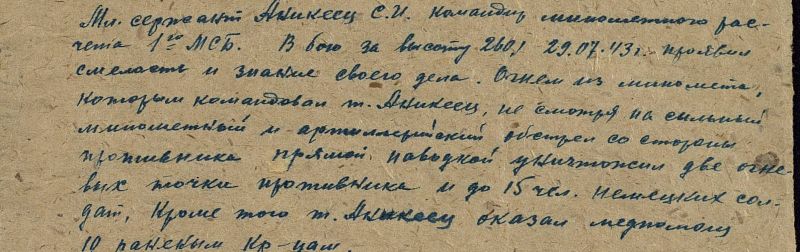 Мл. сержант Аникеец С.И. командир минометного рас-
чета 1го МСБ. В бою за высоту 260,1 29.07.43г. проявил
смелость и знание своего дела. Огнем из миномета,
которым командовал т. Аникеец, не смотря на сильный
минометный и артиллерийский обстрел со стороны
противника прямой наводкой уничтожил две огне-
вых точки противника и до 15 чел. немецких сол-
дат, Кроме того т. Аникеец оказал медпомощ
10 раненым кр-цам.